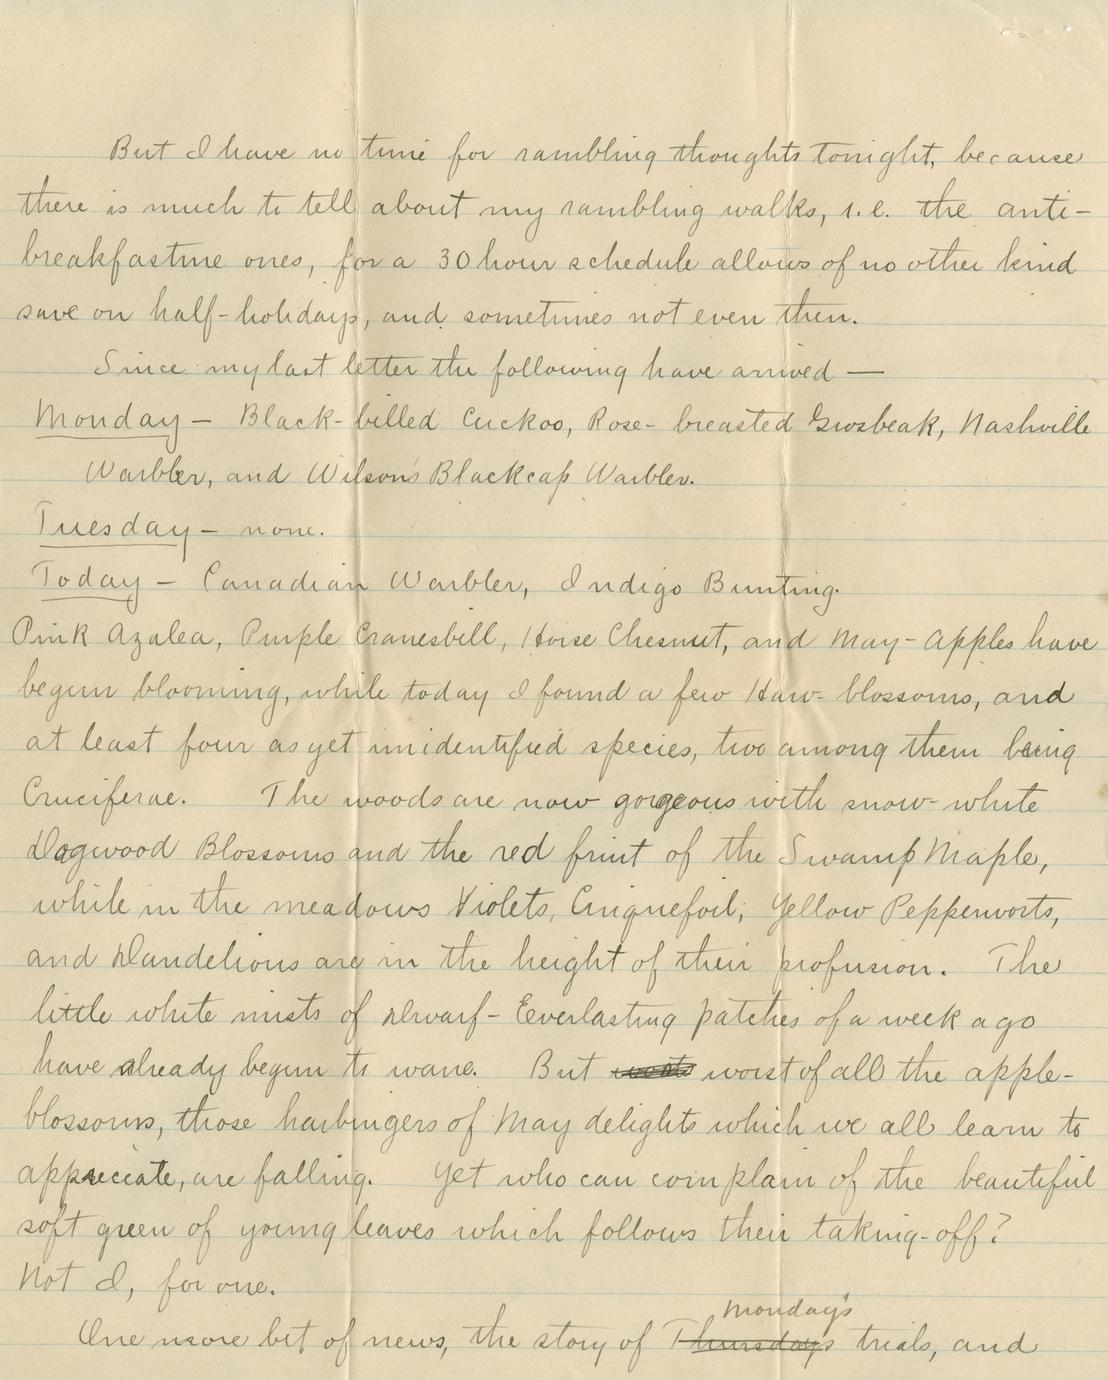 But I have no time for rambling thoughts tonight, because
there is much to tell about my rambling walks, i.e. the anti-
breakfastine ones, for a 30 hour schedule allows of no other kind
save on half-holidays, and sometimes not even then.
Since my last letter the following have arrived —
Monday — Black-billed Cuckoo, Rose-breasted Grosbeak, Nashville
Warbler, and Wilson's Blackcap Warbler.
Tuesday — none.
Today — Canadian Warbler, Indigo Bunting.
Pink Azalea, Purple Cranesbill, Horse Chesnut, and May-Apples have
begun blooming, while today I found a few Haw-blossoms, and
at least four as yet unidentified species, two among them being
Cruciferae. The woods are now gorgeous with snow-white
Dogwood Blossoms and the red fruit of the Swamp Maple,
while in the meadows Violets, Cinquefoil, Yellow Pepperworts,
and Dandelions are in the height of their profusion. The
little white mists of Dwarf-Everlasting patches of a week ago
have already begun to wane. But worst of all the apple-
blossoms, those harbingers of May delights which we all learn to
appreciate, are falling. Yet who can complain of the beautiful
soft green of young leaves which follows their taking-off?
Not I, for one.
Monday's
One more bit of news, the story of Thursdays trials, and